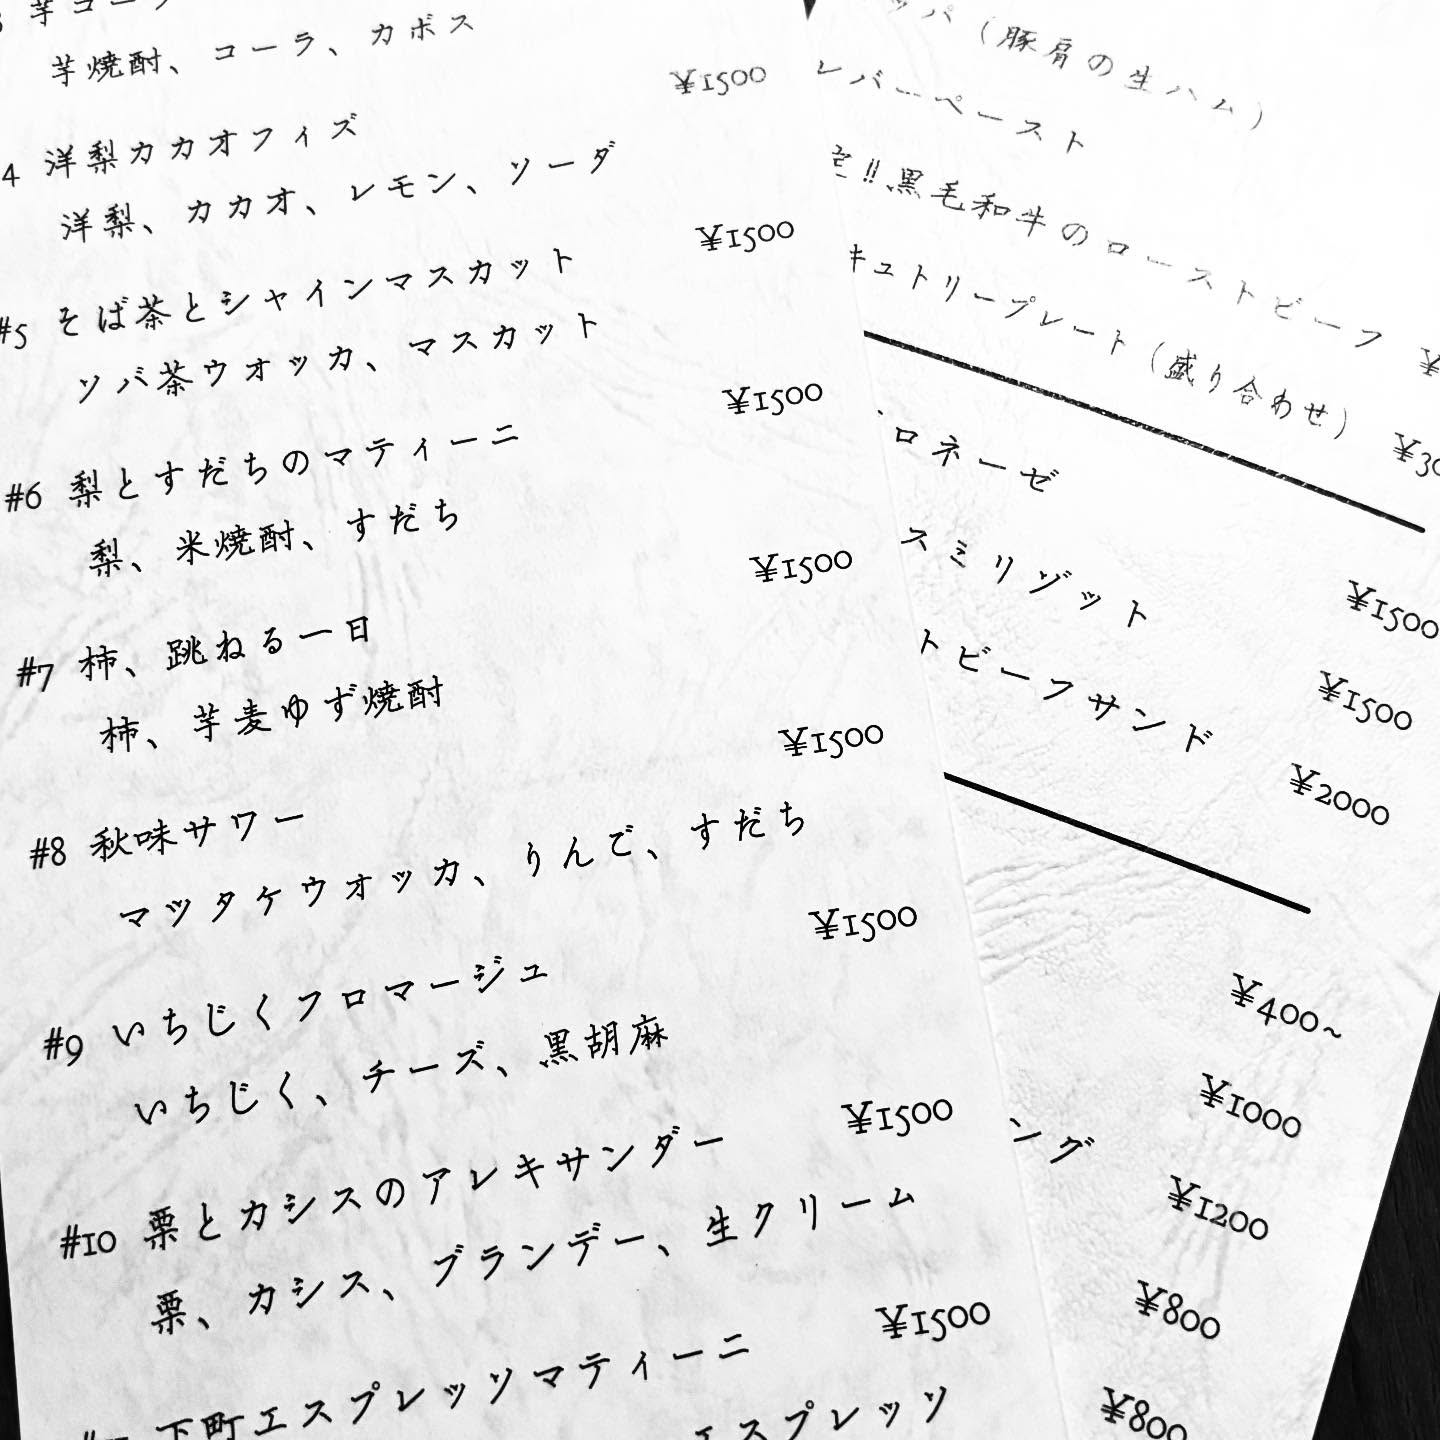 芋コーラ
芋焼酎、コーラ、カボス
¥1500
4 洋梨カカオフィズ
洋梨、カカオ、レモン、ソーダ
¥1500
#5 そば茶とシャインマスカット
ソバ茶ウオッカ、マスカット
¥1500
#6 梨とすだちのマティーニ
梨、米焼酎、すだち
¥1500
#7 柿、跳ねる一日
柿、芋麦ゆず焼酎
¥1500
#8 秋味サワー
マツタケウォッカ、りんご、すだち
¥1500
#9 いちじくフロマージュ
いちじく、チーズ、黒胡麻
¥1500
#10 栗とカシスのアレキサンダー
栗、カシス、ブランデー、生クリーム
¥1500
下町エスプレッソマティーニ
エスプレッソ
ッパ（豚肩の生ハム）
レバーペースト
!!黒毛和牛のローストビーフ
キュトリープレート（盛り合わせ）
ロネーゼ
¥1500
スミリゾット
¥1500
トビーフサンド
¥2000
¥400~
¥1000
ング
¥1200
¥800
¥800